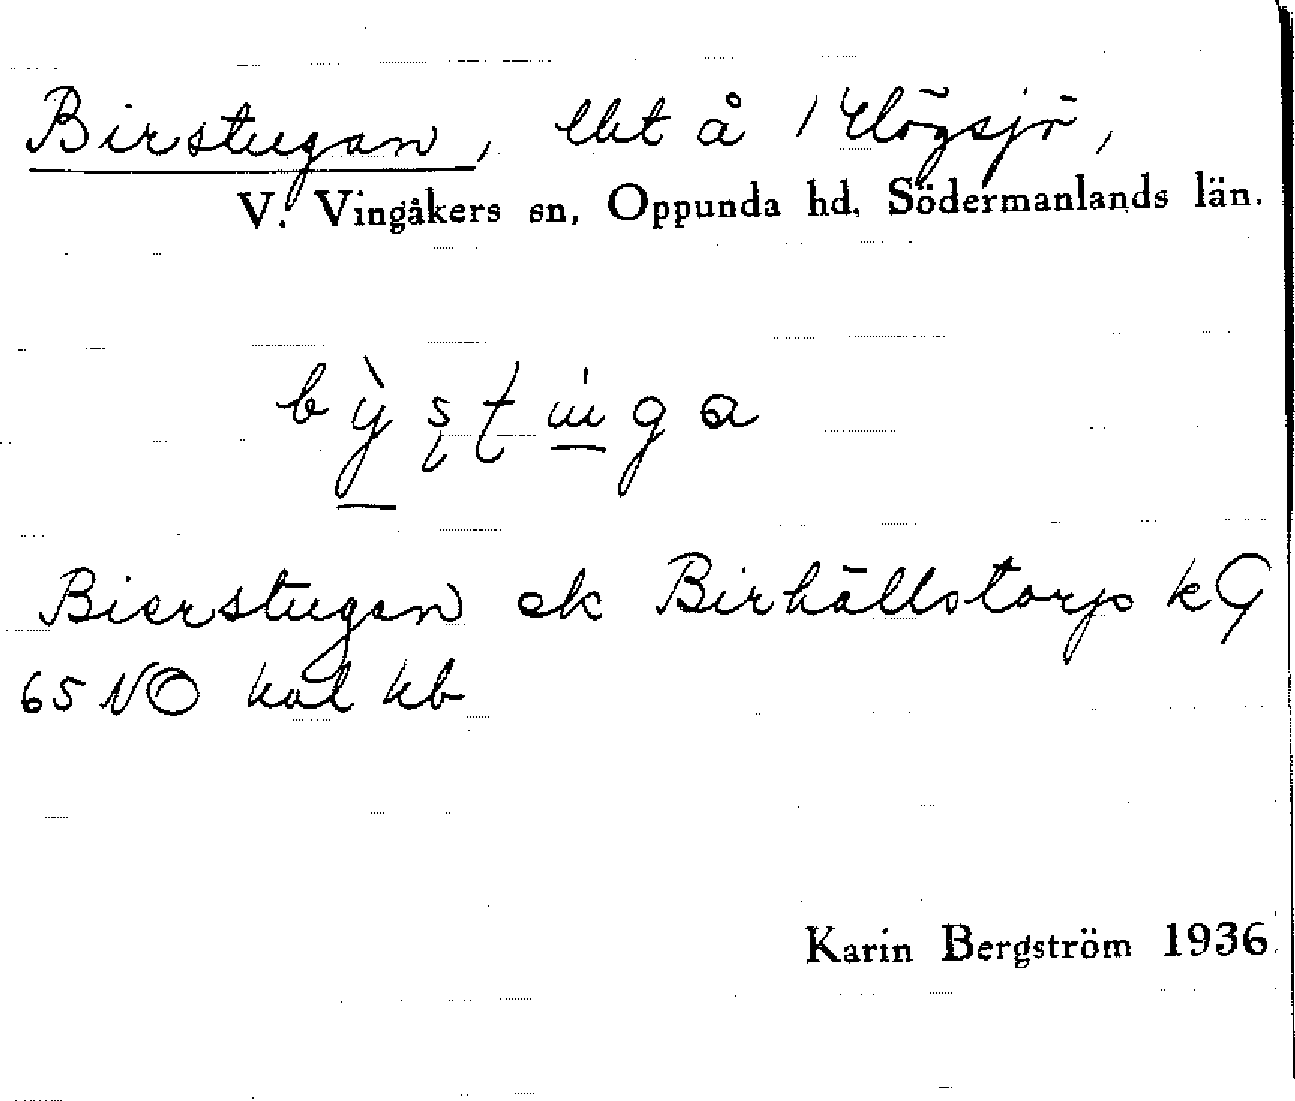 Birstugan, lht å 1 Högsjö,
V. Vingåkers sn, Oppunda hd, Södermanlands län.
Bierstugan ek Birhällstorp
65 NO
Karin Bergström 1936